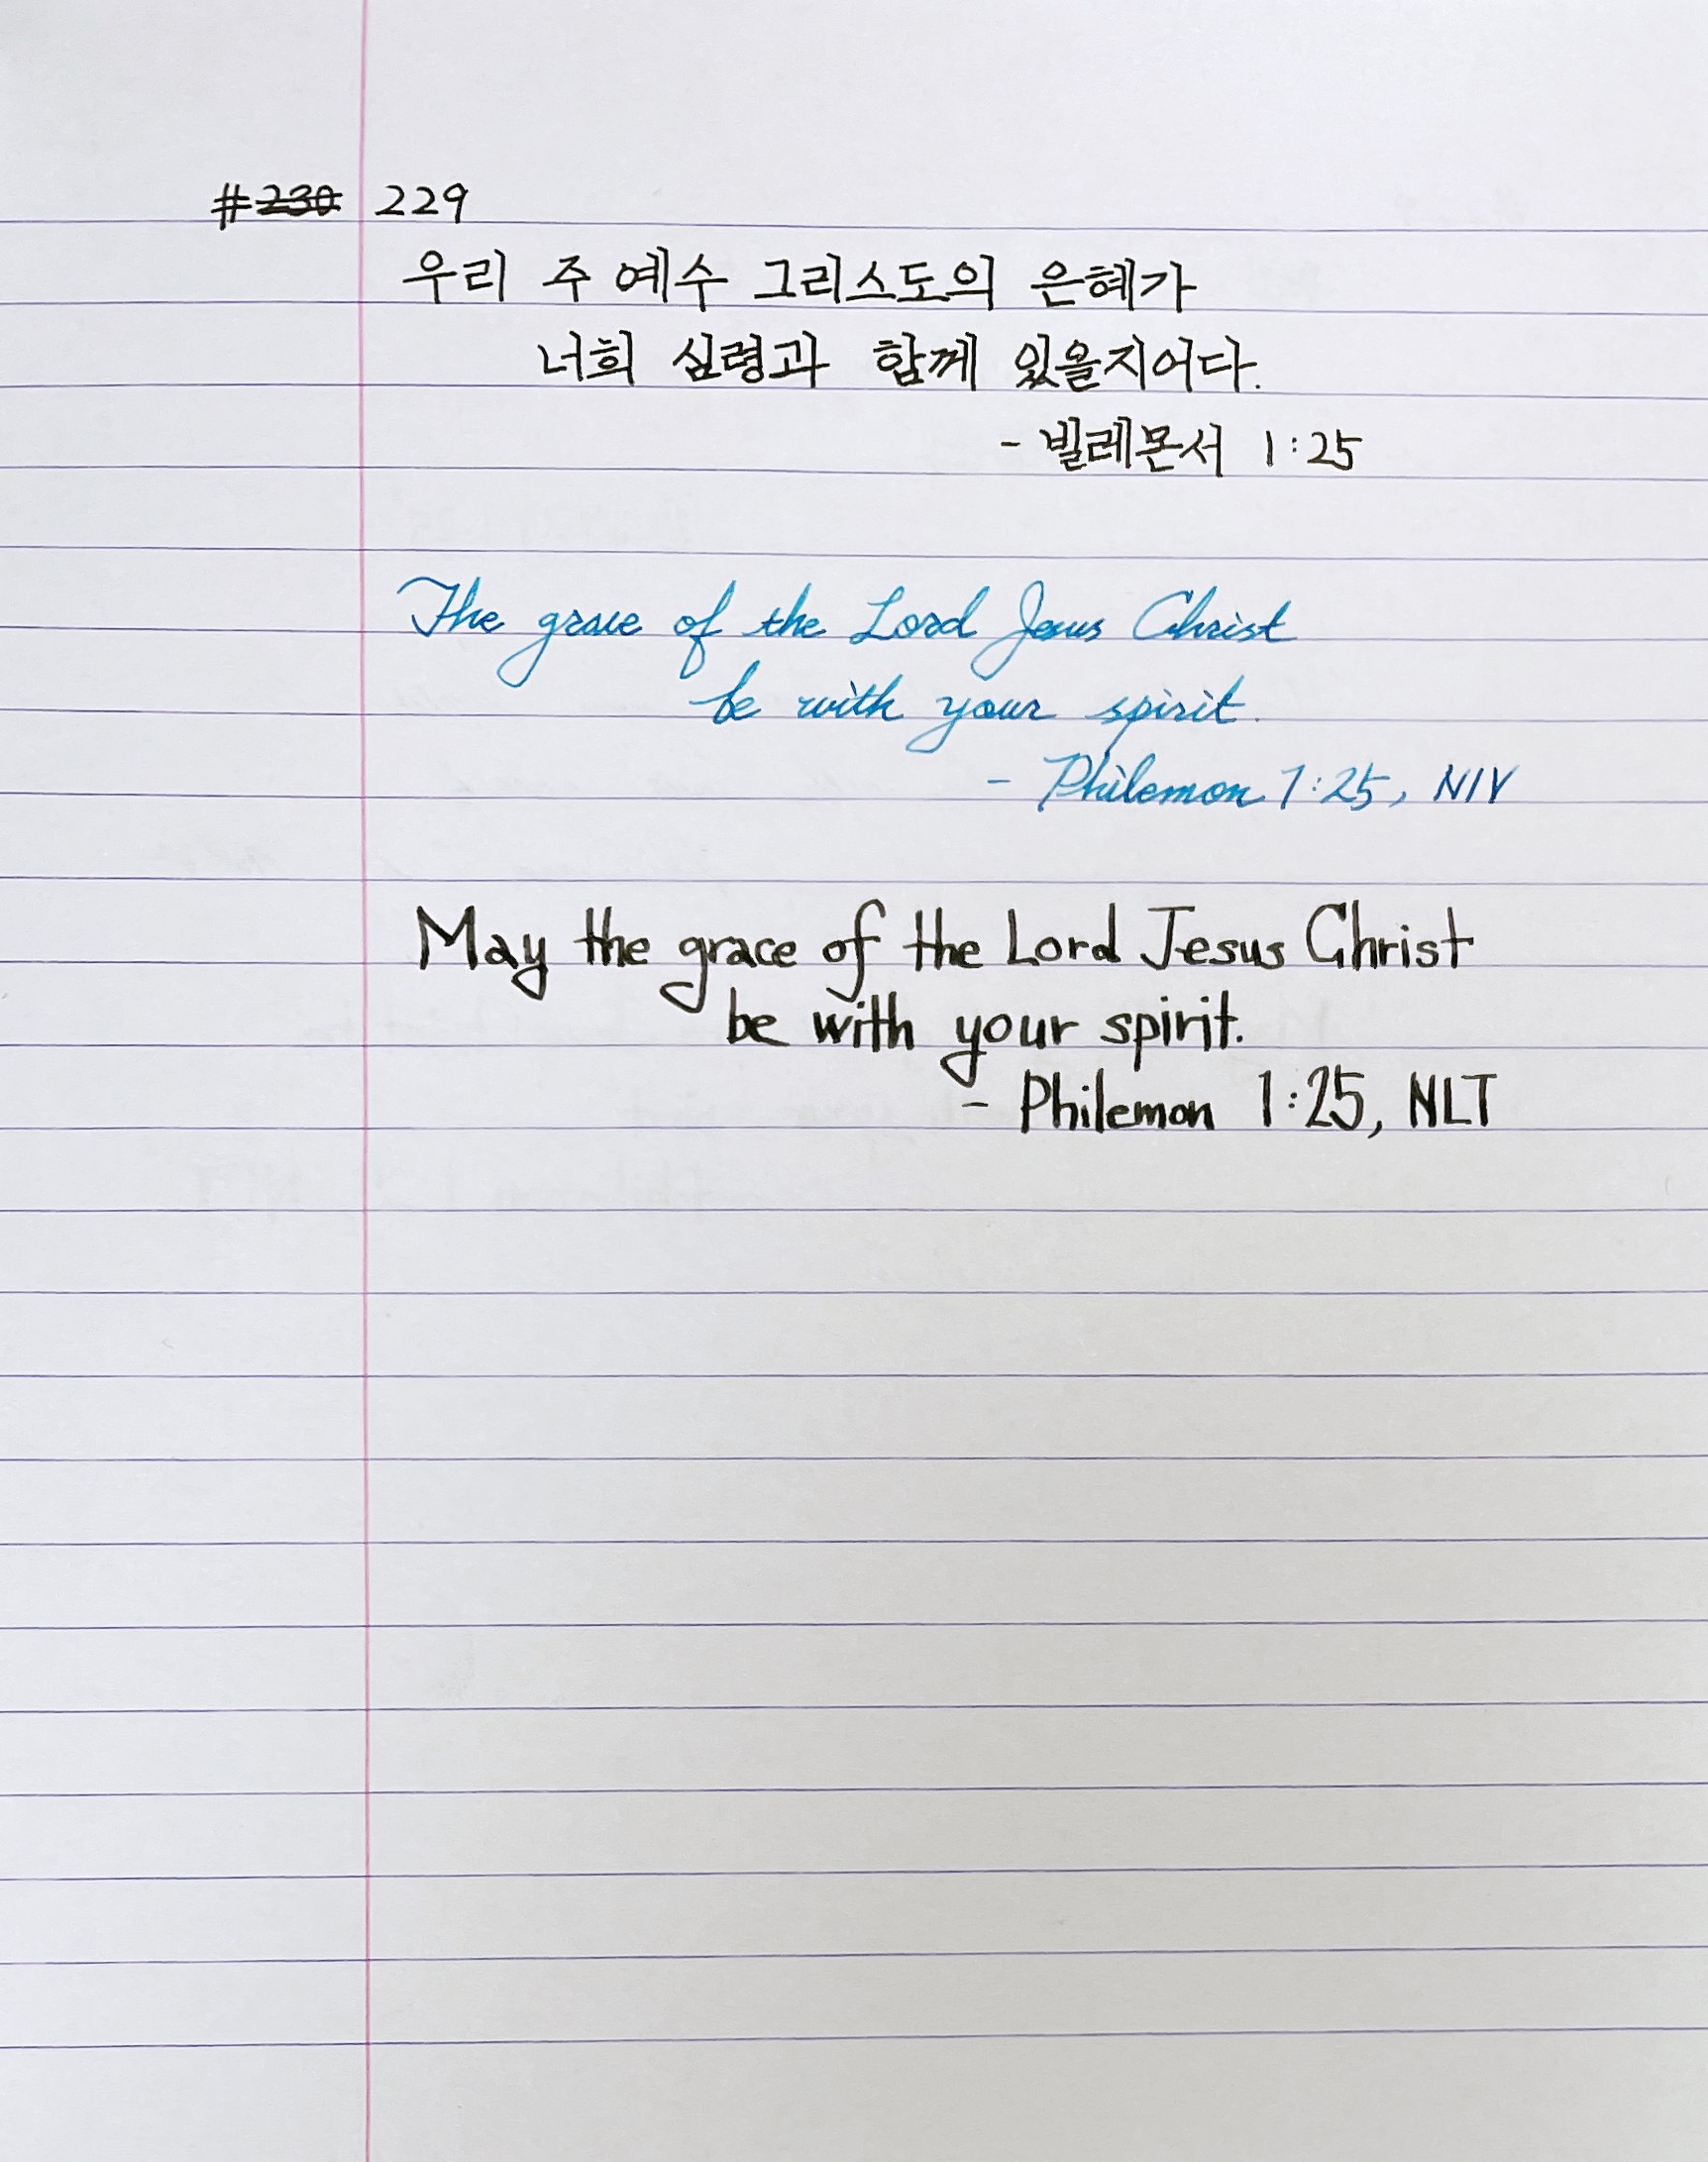 #230 229
우리 주 예수 그리스도의 은혜가
너희 심령과 함께 있을지어다.
- 빌레몬서 1:25
The grace of the Lord Jesus Christ
be with your spirit.
- Philemon 1:25, NIV
May the grace of the Lord Jesus Christ
be with your spirit.
- Philemon 1:25, NLT